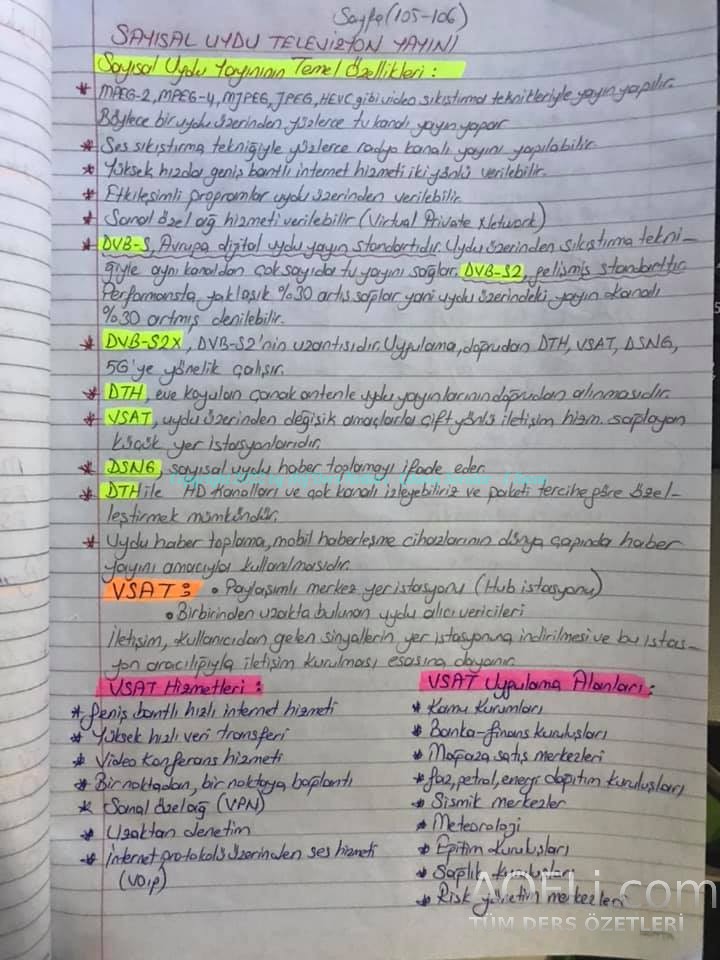 Sayfa (105-106)
SAYISAL UYDU TELEVİZYON YAYINI
Sayısal Uydu Yayınının Temel Özellikleri :
* MPEG-2, MPEG-4, MJPEG, JPEG, HEVC gibi video sıkıştırma teknikleriyle yayın yapılır.
Böylece bir uydu üzerinden yüzlerce tv kanalı yayın yapar
* Ses sıkıştırma tekniğiyle yüzlerce radyo kanalı yayını yapılabilir.
* Yüksek hızda geniş bantlı internet hizmeti iki yönlü verilebilir.
* Etkileşimli programlar uydu üzerinden verilebilir.
* Sanal özel ağ hizmeti verilebilir (Virtual Private Network)
* DVB-S, Avrupa digital uydu yayın standartıdır. Uydu üzerinden sıkıştırma tekni-
ğiyle aynı kanaldan çok sayıda tv yayını sağlar. DVB-S2, gelişmiş standarttır.
Performansta yaklaşık %30 artış sağlar yani uydu üzerindeki yayın kanalı
%30 artmış denilebilir.
* DVB-S2X, DVB-S2'nin uzantısıdır. Uygulama, doğrudan DTH, VSAT, DSNG,
5G'ye yönelik çalışır.
* DTH, eve koyulan çanak antenle uydu yayınlarının doğrudan alınmasıdır.
* VSAT, uydu üzerinden değişik amaçlarla çift yönlü iletişim hizm. sağlayan
küçük yer istasyonlarıdır.
* DSNG, sayısal uydu haber toplamayı ifade eder.
* DTH ile HD kanalları ve çok kanalı izleyebiliriz ve paketi tercihe göre özel-
leştirmek mümkündür.
* Uydu haber toplama, mobil haberleşme cihazlarının dünya çapında haber
yayını amacıyla kullanılmasıdır.
VSAT : • Paylaşımlı merkez yer istasyonu (Hub istasyonu)
• Birbirinden uzakta bulunan uydu alıcı vericileri
İletişim, kullanıcıdan gelen sinyallerin yer istasyonuna indirilmesi ve bu istas-
yon aracılığıyla iletişim kurulması esasına dayanır.
VSAT Hizmetleri :
* Geniş bantlı hızlı internet hizmeti
* Yüksek hızlı veri transferi
* Video konferans hizmeti
* Bir noktadan, bir noktaya bağlantı
* Sanal özel ağ (VPN)
* Uzaktan denetim
* İnternet protokolü üzerinden ses hizmeti
(VOIP)
VSAT Uygulama Alanları :
* Kamu kurumları
* Banka-finans kuruluşları
* Mağaza satış merkezleri
* Gaz, petrol, enerji dağıtım kuruluşları
* Sismik merkezler
* Meteoroloji
* Eğitim kuruluşları
* Sağlık kuruluşları
* Risk yönetim merkezleri
AOFLi.com
TÜM DERS ÖZETLERİ